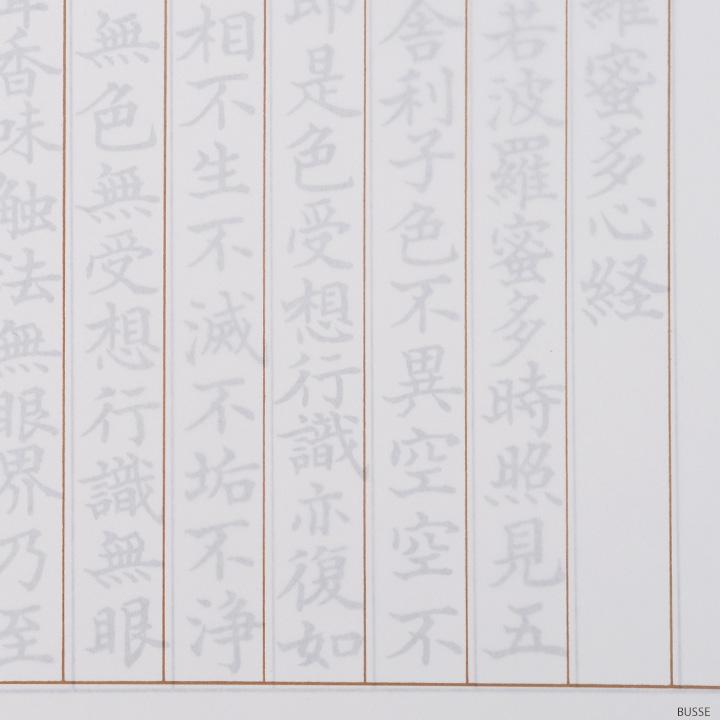 羅蜜多心経
若波羅蜜多時照見五
舎利子色不異空空不
即是色受想行識亦復如
相不生不滅不垢不浄
無色無受想行識無眼
香味触法無眼界乃至
BUSSE